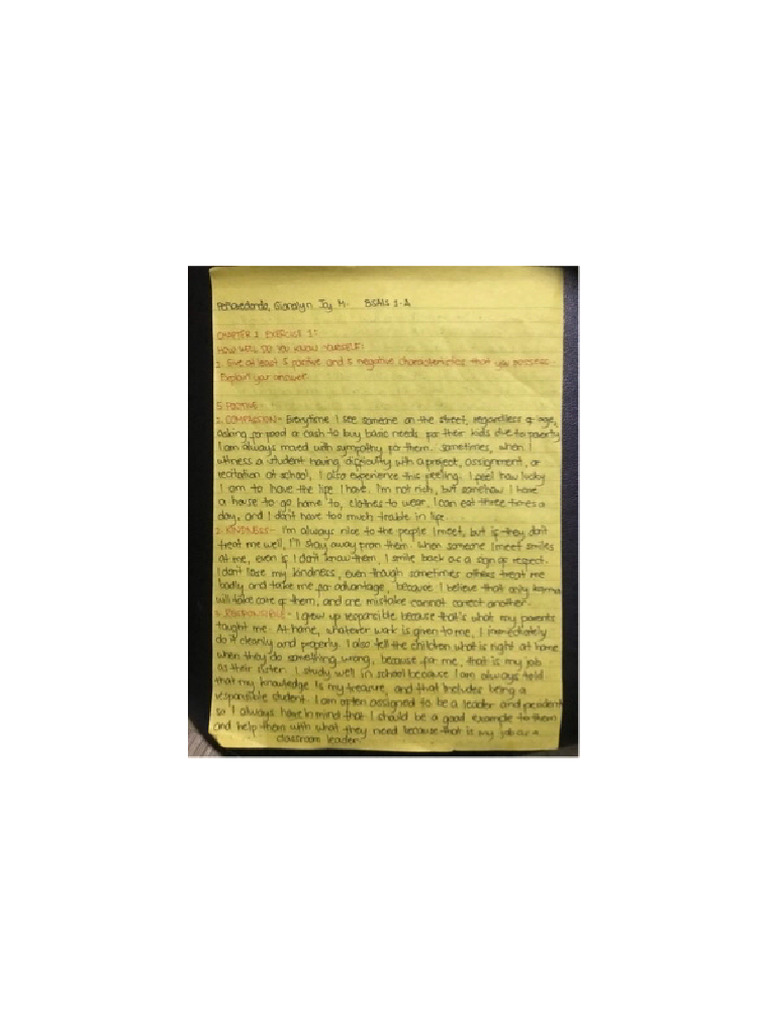 Peñaredonda, Gianalyn Joy M. BSAIS 1-A
CHAPTER 1 EXERCISE 1:
HOW WELL DO YOU KNOW YOURSELF?
1. Give at least 5 positive and 5 negative characteristics that you possess.
Explain your answer.
5 POSITIVE
1. COMPASSION - Everytime I see someone on the street, regardless of age,
asking for food or cash to buy basic needs for their kids due to poverty
I am always moved with sympathy for them. Sometimes, when I
witness a student having difficulty with a project, assignment, or
recitation at school, I also experience this feeling. I feel how lucky
I am to have the life I have. I'm not rich, but somehow I have
a house to go home to, clothes to wear. I can eat three times a
day, and I don't have too much trouble in life.
2. KINDNESS - I'm always nice to the people I meet, but if they don't
treat me well, I'll stay away from them. When someone I meet smiles
at me, even if I don't know them, I smile back as a sign of respect.
I don't lose my kindness, even though sometimes others treat me
badly and take me for advantage, because I believe that only karma
will take care of them, and one mistake cannot correct another.
3. RESPONSIBLE - I grew up responsible because that's what my parents
taught me. At home, whatever work is given to me, I immediately
do it cleanly and properly. I also tell the children what is right at home
when they do something wrong, because for me, that is my job
as their sister. I study well in school because I am always told
that my knowledge is my treasure, and that includes being a
responsible student. I am often assigned to be a leader and president
so I always have in mind that I should be a good example to them
and help them with what they need because that is my job as a
classroom leader.